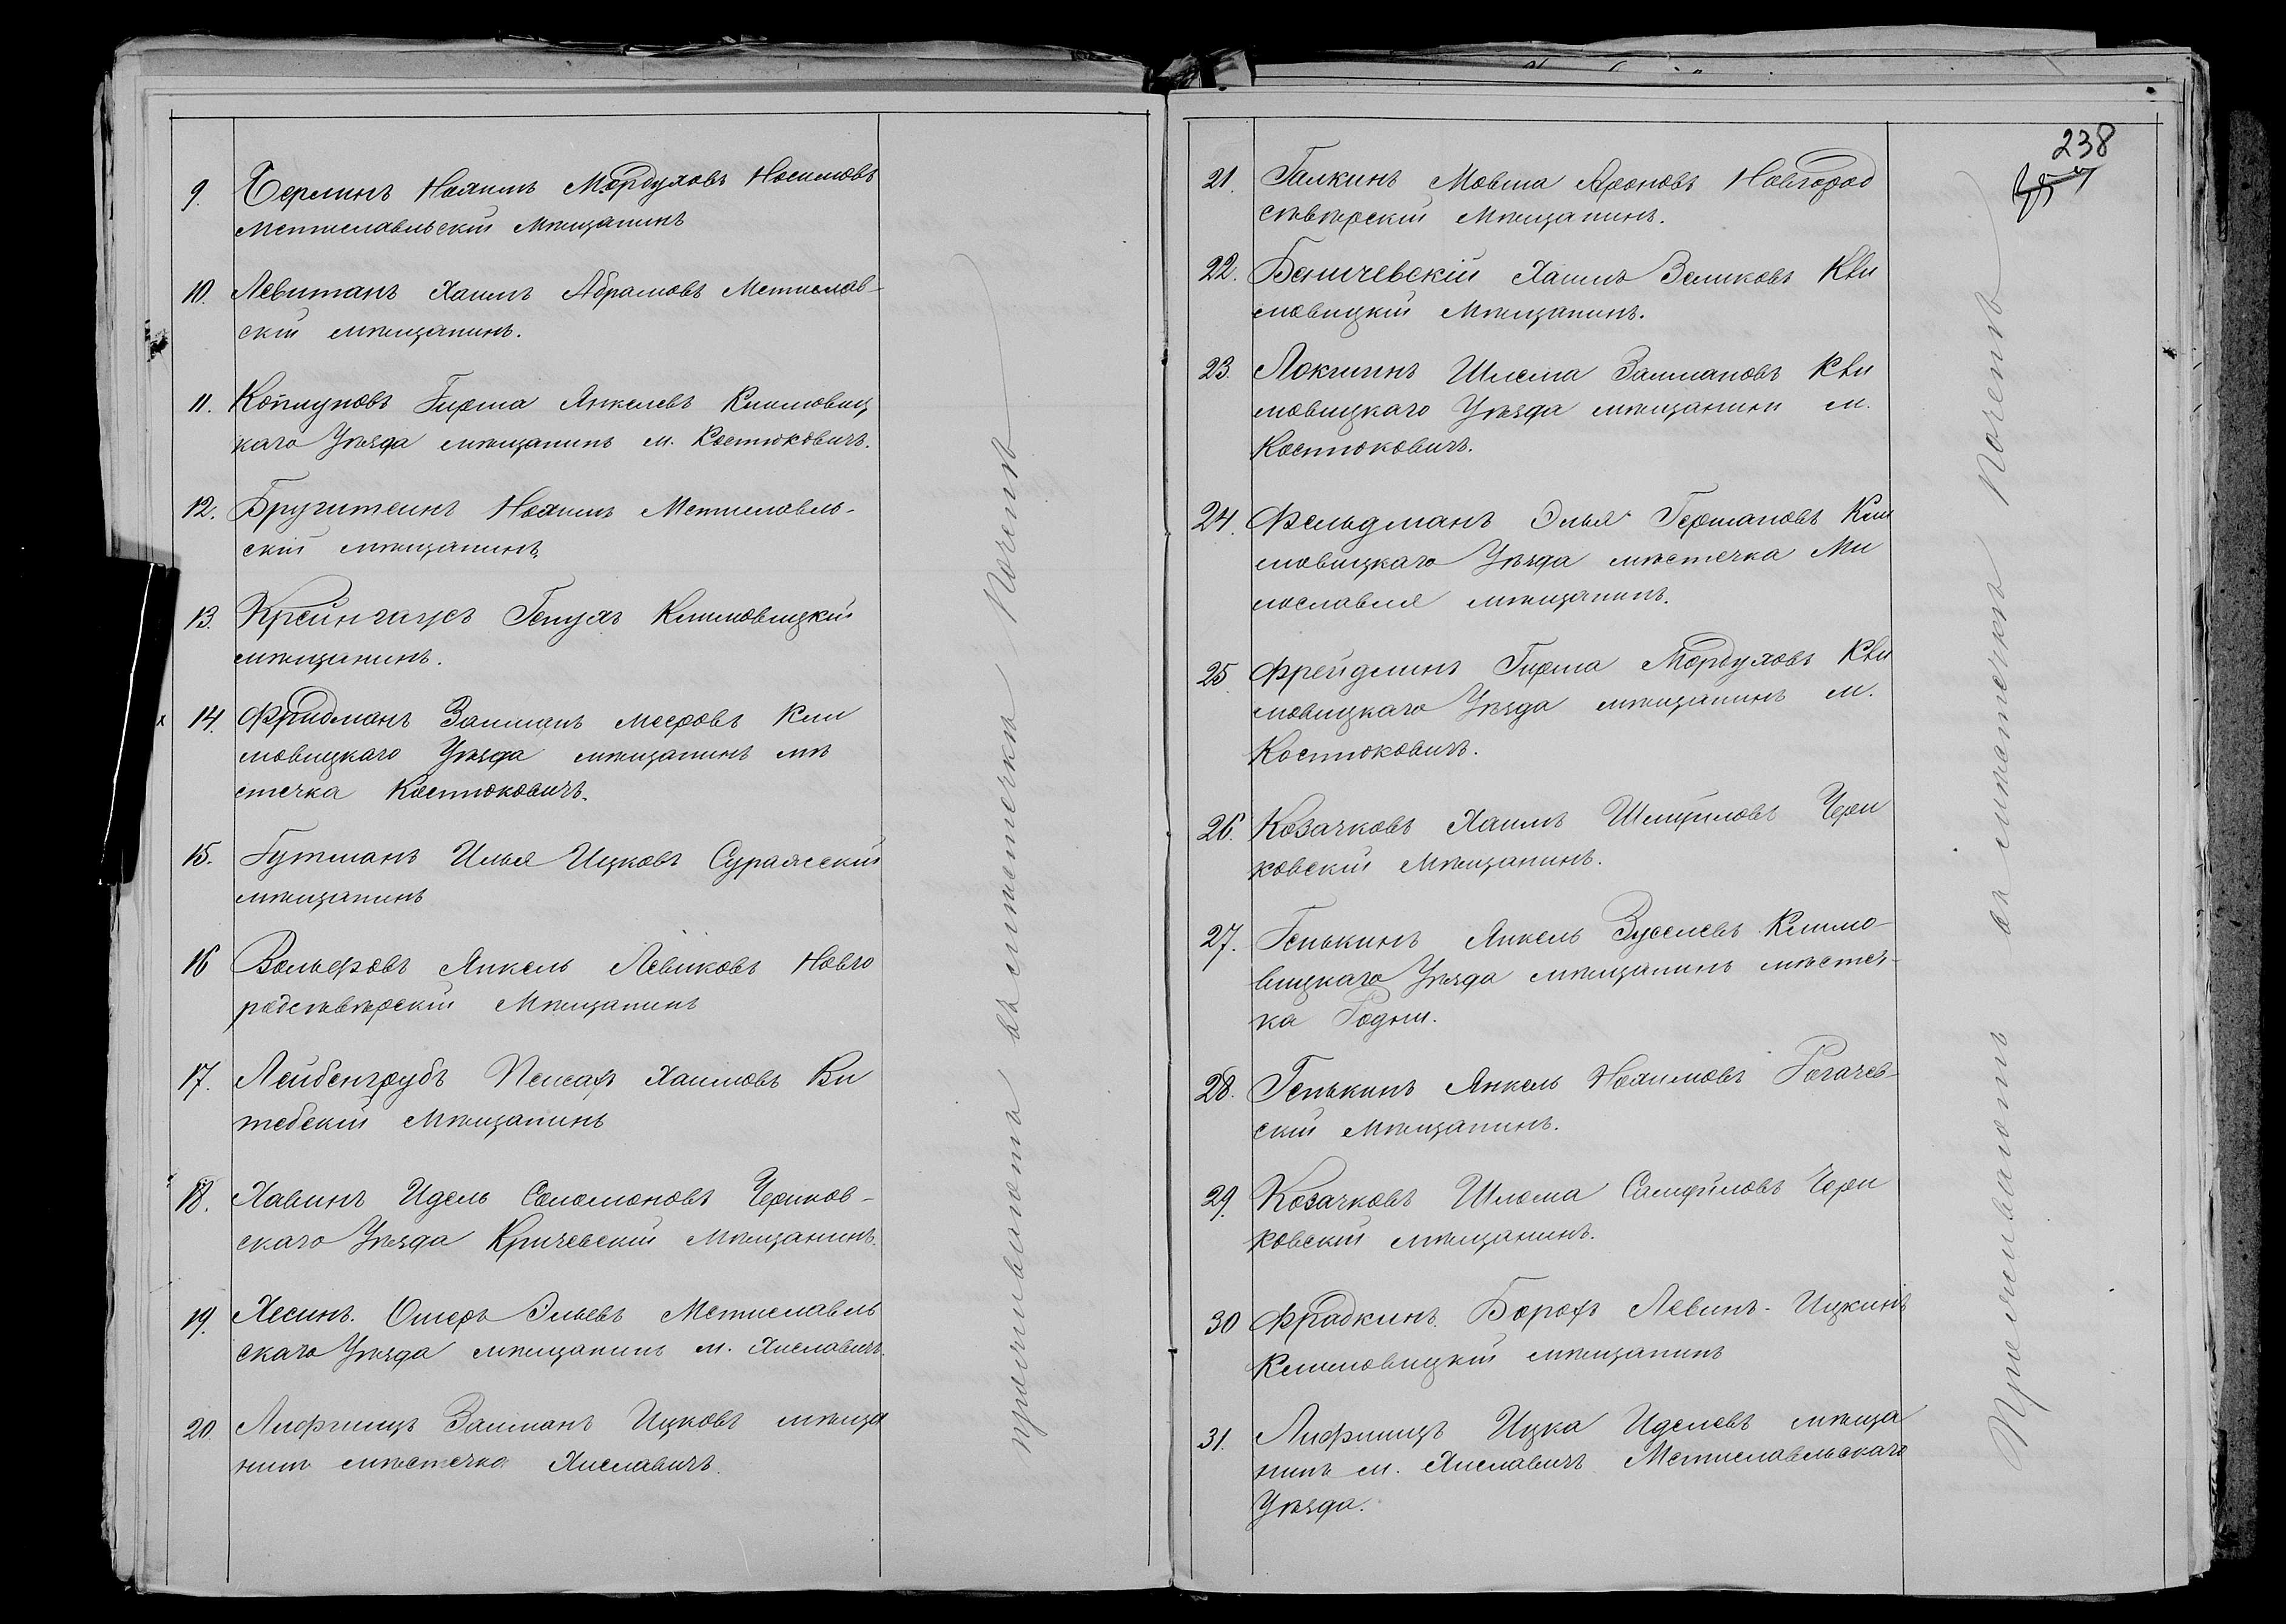 9. Берлинъ Нохимъ Мордуховъ Носимовъ
Мстиславльскій Мѣщанинъ
10. Левитанъ Хаимъ Абрамовъ Мстислав-
скій мѣщанинъ.
11. Копмуновъ Гирша Янкелевъ Климовиц
каго Уѣзда мѣщанинъ м. Костюковичъ.
12. Бругитеинъ Нохимъ Мстиславль-
скій мѣщанинъ
13. Крейнгаусъ Генухъ Климовицкій
мѣщанинъ.
14. Фридманъ Залманъ Меєровъ Кли
мовицкаго Уѣзда мѣщанинъ мѣ
стечка Костюковичъ.
15. Гутманъ Илья Ицковъ Суражскій
мѣщанинъ
16 Вольфовъ Янкель Левиковъ Новго
родсѣвѣрскій Мѣщанинъ
17. Лейбенгрубъ Пейсахъ Хаимовъ Ви
тебскій Мѣщанинъ
18. Хавинъ Идель Соломоновъ Чериков-
скаго Уѣзда Кричевскій Мѣщанинъ.
19. Хесинъ Ошеръ Эльевъ Мстиславль
скаго Уѣзда мѣщанинъ м. Хиславичъ.
20. Лифшицъ Залманъ Ицковъ мѣща
нинъ мѣстечка Хиславичъ.
проживаютъ въ мѣстечкѣ Почепѣ
238
21. Галкинъ Мовша Ароновъ Новгород
сѣвѣрскій Мѣщанинъ.
22. Беничевскій Хаимъ Зеликовъ Кли
мовицкій Мѣщанинъ.
23. Локшинъ Шлема Залмановъ Кли
мовицкаго Уѣзда мѣщанинъ м.
Костюковичъ.
24. Фельдманъ Элья Германовъ Кли
мовицкаго Уѣзда мѣстечка Ми
лославля мѣщанинъ.
25 Фрейдлинъ Гирша Мордуховъ Кли
мовицкаго Уѣзда мѣщанинъ м.
Костюковичъ.
26. Козачковъ Хаимъ Шмуйловъ Чери
ковскій Мѣщанинъ.
27. Генькинъ Янкель Зуселевъ Климо-
вицкаго Уѣзда мѣщанинъ мѣстеч-
ка Родни.
28. Генькинъ Янкель Нохимовъ Рогачев-
скій Мѣщанинъ.
29. Козачковъ Шлема Самуйловъ Чери
ковскій мѣщанинъ.
30 Фрадкинъ Борохъ Левинъ-Ицкинъ
Климовицкій мѣщанинъ
31. Лифшицъ Ицка Иделевъ мѣща
нинъ м. Хиславичъ Мстиславльскаго
Уѣзда.
Проживаютъ въ мѣстечкѣ Почепѣ